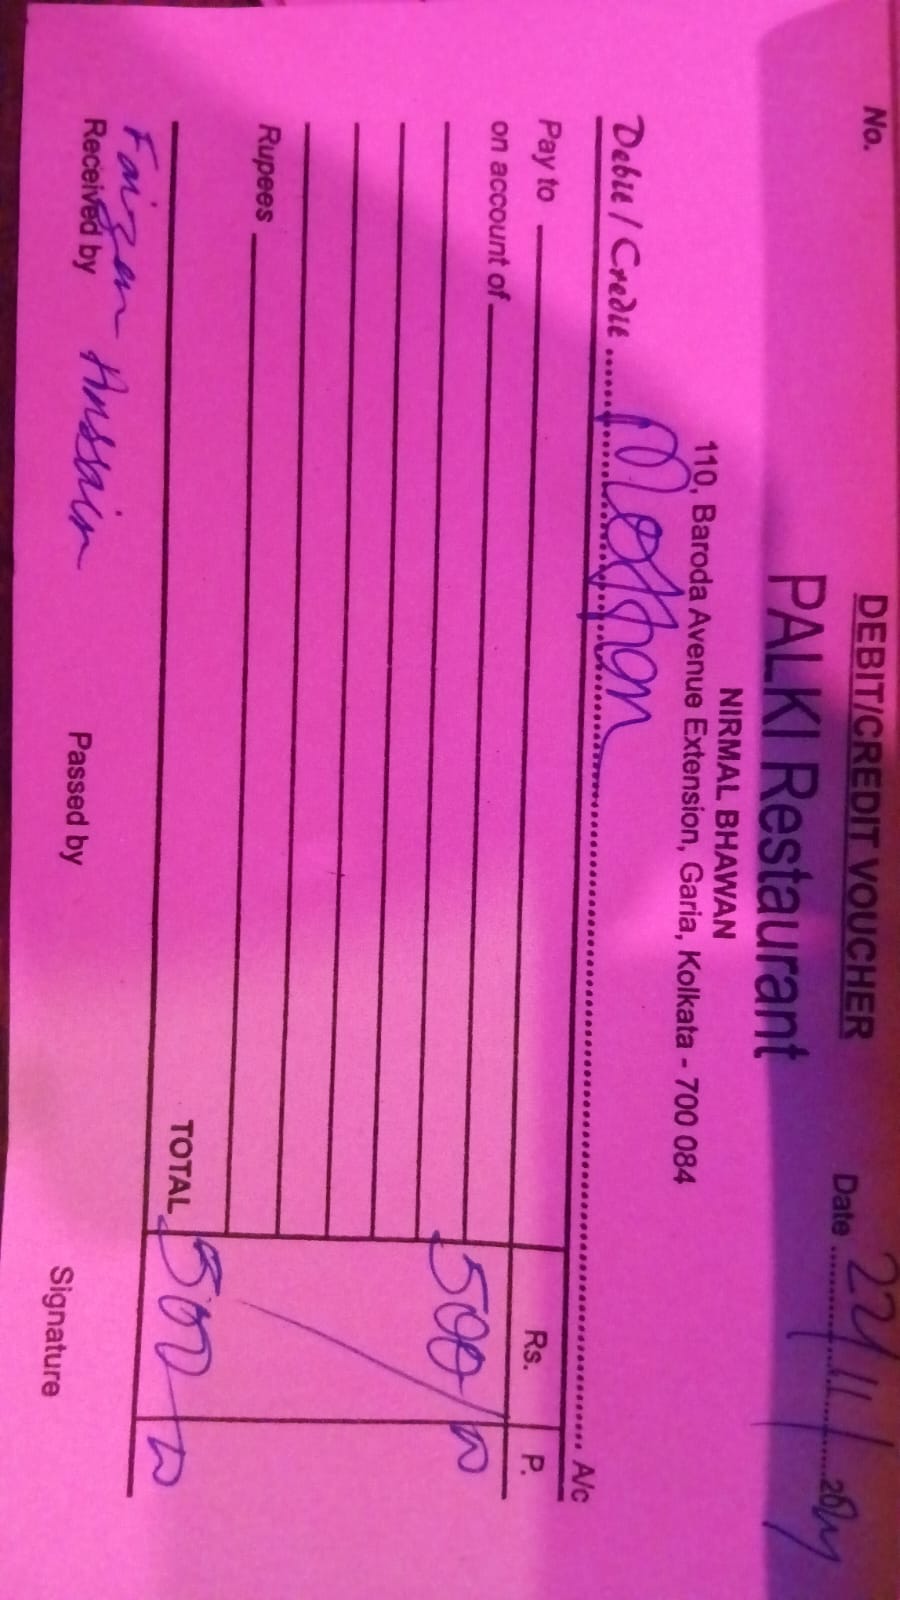 No.
DEBIT/CREDIT VOUCHER
Date 22/11/20
PALKI Restaurant
NIRMAL BHAWAN
110, Baroda Avenue Extension, Garia, Kolkata - 700 084
Debit / Credit .......... A/c
Pay to
Rs. P.
on account of
500/
Rupees
TOTAL 500
Faizan Hussain
Received by Passed by Signature